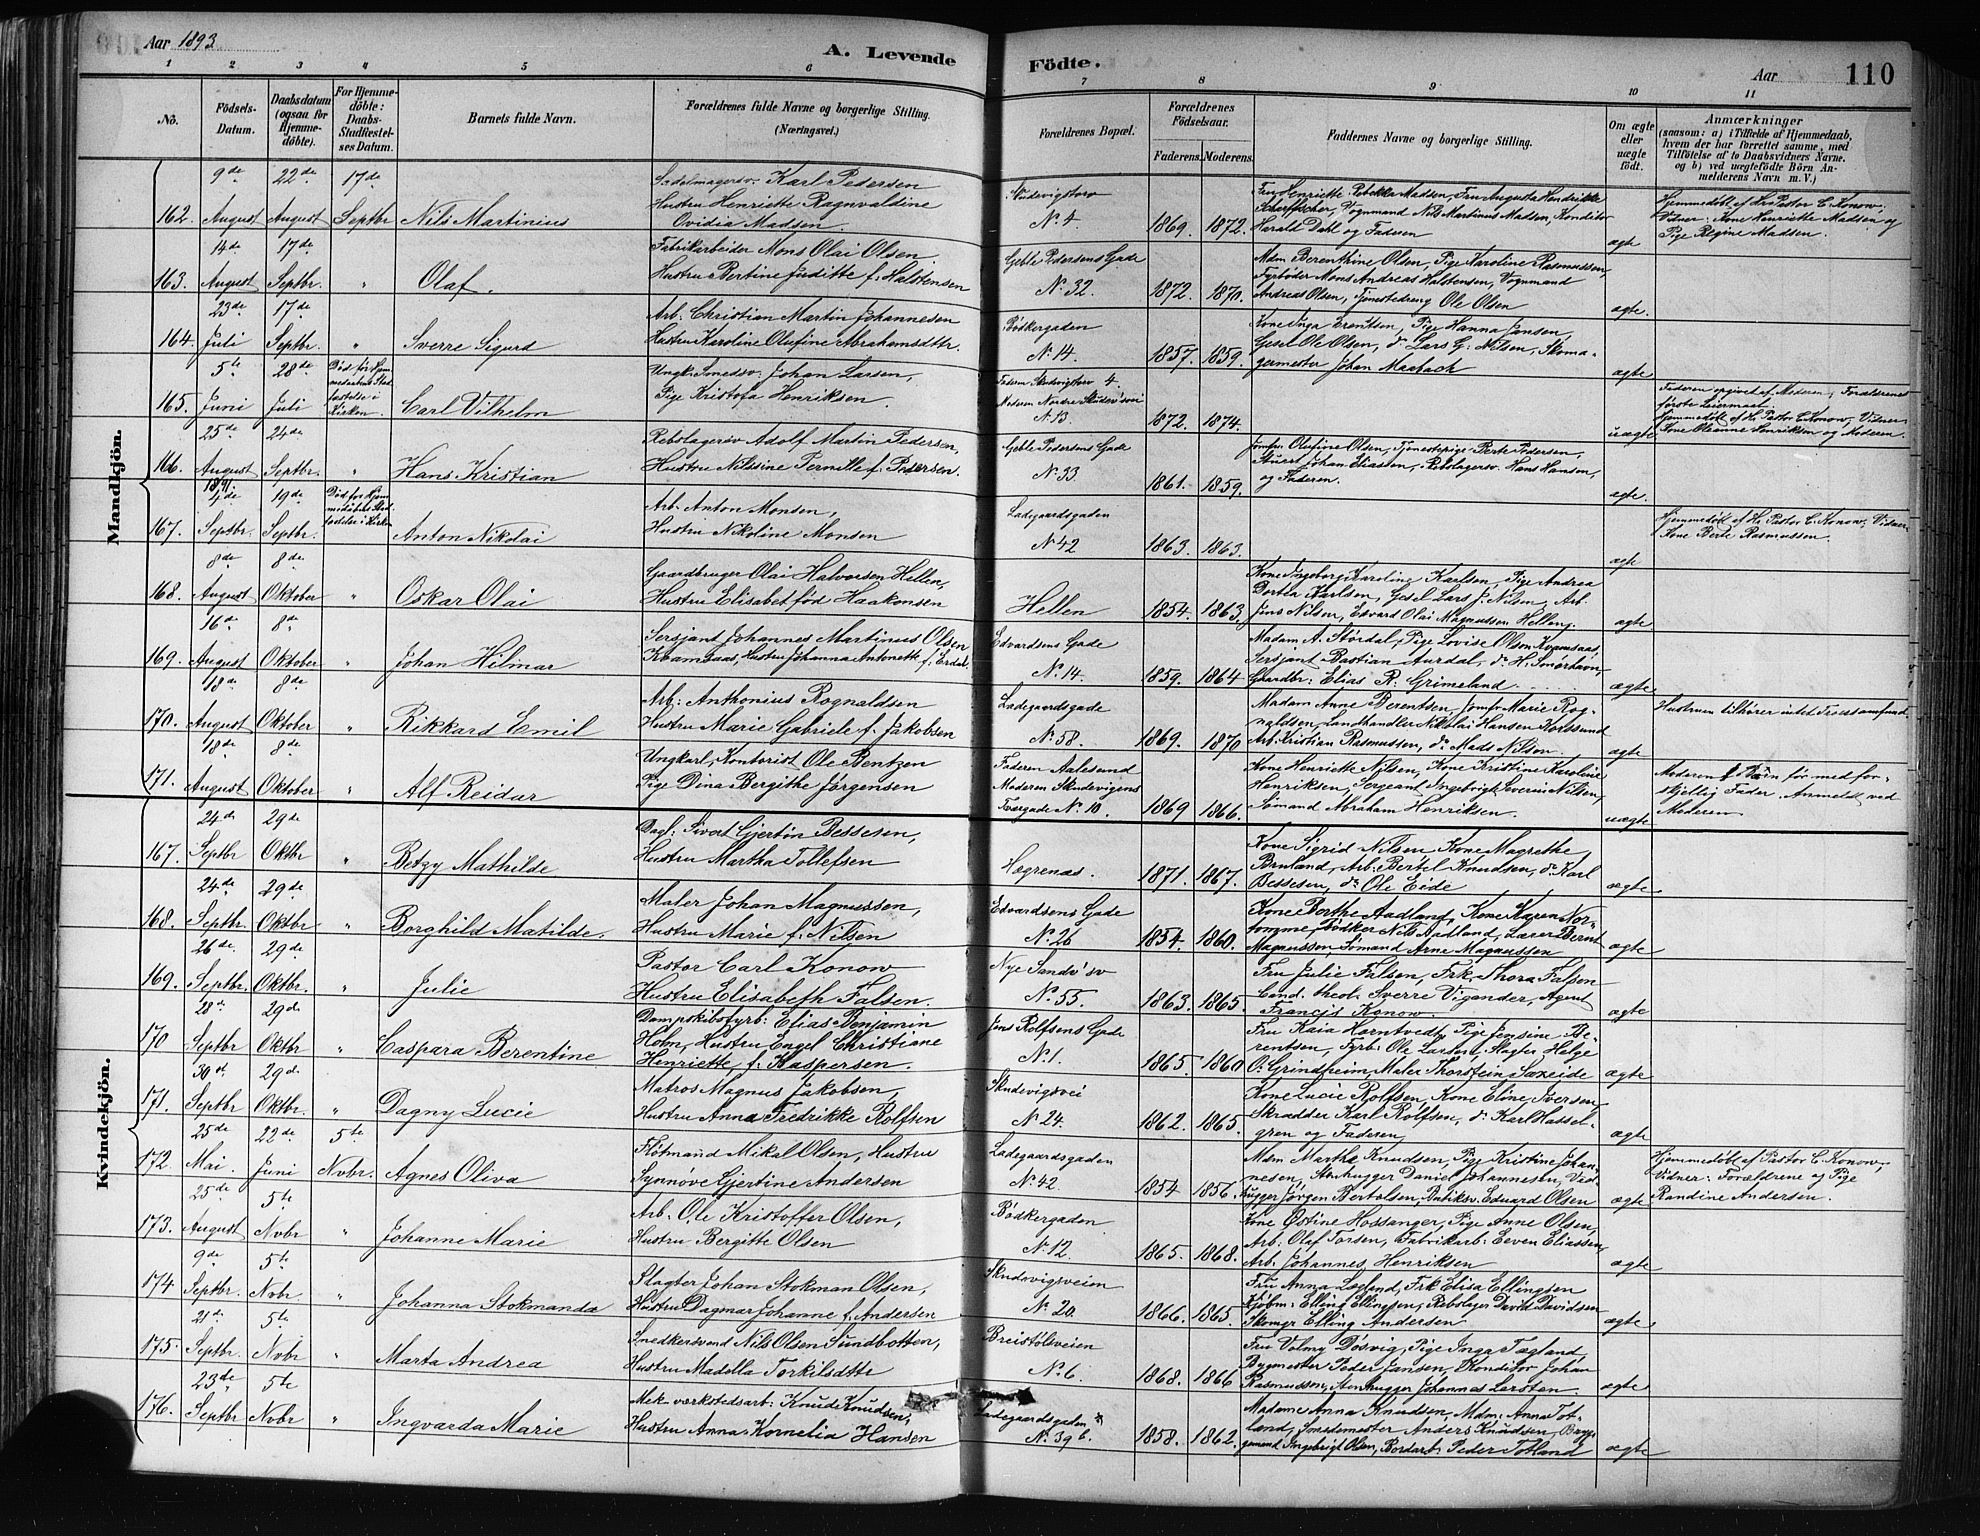 Aar 1893
A. Levende Födte.
Aar
110
1 2 3 4 5 6 7 8 9 10 11
No.
Födsels-Datum.
Daabsdatum (ogsaa for Hjemmedöbte).
For Hjemmedöbte: Daabs-Stadfæstelses Datum.
Barnets fulde Navn.
Forældrenes fulde Navne og borgerlige Stilling. (Næringsvei.)
Forældrenes Bopæl.
Forældrenes Födselsaar.
Faderens. Moderens.
Faddernes Navne og borgerlige Stilling.
Om ægte eller uægte födt.
Anmærkninger (saasom: a) i Tilfælde af Hjemmedaab, hvem der har forrettet samme, med Tilföielse af to Daabsvidners Navne. og b) ved uægtefödte Börn Anmelderens Navn m. V.)
Mandkjön.
162. 9de August 22de August 17de Septbr Nils Martinius
Sadelmagersv. Karl Pedersen
Hustru Henriette Ragnvaldine
Ovidia Madsen.
Skudevigstorv
No. 4 1869. 1872.
Fru Henriette Rebekka Madsen, Fru Augusta Hendrikke
Vognmand Nils Martinus Madsen, Konditor
Harald Dahl og Faderen
ægte
Hjemmedöbt af Hr. Pastor C. Konow,
Vidner: Kone Henriette Madsen og
Pige Regine Madsen.
163. 14de August 17de Septbr. " Olaf.
Fabrikarbeider Mons Olai Olsen
Hustru Bertine Juditte f. Halstensen
Geble Pedersens Gade
No. 32. 1872. 1870.
Mdm Berenthine Olsen, Pige Karoline Rasmussen,
Fyrböder Mons Andreas Halstensen, Vognmand
Andreas Olsen, Tjenestedreng Ole Olsen
ægte.
164. 23de Juli 17de Septbr. " Sverre Sigurd
Arb. Christian Martin Johannesen
Hustru Karoline Olufine Abrahamsdttr.
Bödkergaden
No. 14. 1857. 1859.
Kone Inga Erentsen, Pige Hanna Jansen,
Gesel Ole Olsen, do Lars G. Nilsen, Skoma-
germester Johan Masbach
ægte
165. 5te Juni 28de Juli Död för Hjemmedaabens Stadfæstelse i Kirken. Carl Vilhelm
Ungk. Smedsv. Johan Larsen,
Pige Kristofa Henriksen.
Faderen Skudevigstorv 4.
Moderen Nordre Skudev'svei
No. 13. 1872. 1874.
uægte
Faderen opgivet af Moderen, Forældrenes
første Leiermaal.
Hjemmedöbt af Hr. Pastor C. Konow, Vidner
Kone Oleanne Henriksen og Moderen.
166. 25de August 24de Septbr. " Hans Kristian
Rebslagersv. Adolf Martin Pedersen,
Hustru Nilssine Pernille f. Pedersen.
Geble Pedersens Gade
No. 33. 1861. 1859.
Jomfr. Olufine Olsen, Tjenestepige Berte Pedersen,
Johan Eliassen, Rebslagersv. Hans Hansen,
og Faderen.
ægte.
167. 1ste Septbr. 19de Septbr. Död for Hjemmedaabens Stadfæstelse i Kirken Anton Nikolai
Arb. Anton Monsen,
Hustru Nikoline Monsen
Ladegaardsgaden
No. 42 1863. 1863.
ægte
Hjemmedöbt af Hr. Pastor C. Konow. Vidner
Kone Berte Rasmussen.
168. 8de August 8de Oktober " Oskar Olai
Gaardbruger Olai Halvorsen Hellen,
Hustru Elisabet föd Haakonsen
Hellen 1854. 1863.
Kone Ingeborg Karoline Karlsen, Pige Andrea
Dorthea Karlsen, Gesel Lars J. Nilsen, Arb.
Jens Nilsen, Edvard Olai Magnussen Hellen.
ægte
169. 16de August 8de Oktober " Johan Hilmar
Sersjant Johannes Martinus Olsen
Kvamsaas, Hustru Johanna Antonette f. Erdal.
Edvardsens Gade
No. 14. 1859. 1864
Madam A. Stördal, Pige Lovise Olsen Kvamsaas,
Sersjant Bastian Aurdal, do H. Smörhavn,
Gaardbr. Elias R. Grimeland
ægte.
170. 18de August 8de Oktober " Rikkard Emil
Arb. Anthonius Rognaldsen
Hustru Marie Gabriele f. Jakobsen
Ladegaardsgade
No. 58. 1869. 1870
Madam Anne Berentsen, Jomfr. Marie Rog-
naldsen, Landhandler Nikolai Hansen Korssund
Arb. Kristian Rasmussen, do Mads Nilsen.
ægte
Hustruen tilhörer intet Troessamfund.
171. 18de August 8de Oktober " Alf Reidar
Ungkarl, Kontorist Ole Bentzen
Pige Dina Bergithe Jörgensen
Faderen Aalesund
Moderen Skudevigens
Tvergade No. 10. 1869 1866.
Kone Henriette Nilsen, Kone Kristine Karoline
Henriksen, Sergeant Ingebrigt Severin Nilsen,
Sömand Abraham Henriksen.
uægte
Moderen Börn för med for-
skjellig Fader. Anmeldt ved
Moderen
Kvindekjön.
167. 24de Septbr 29de Oktbr. " Betzy Mathilde
Dagl. Sivert Gjertön Bessesen,
Hustru Martha Tollefsen
Hægrenæs. 1871. 1867.
Kone Sigrid Nilsen Kone Magrethe
Bruland, Arb. Bertel Knudsen, do Karl
Bessesen, do Ole Eide
ægte
168. 24de Septbr. 29de Oktbr. " Borghild Matilde.
Maler Johan Magnussen,
Hustru Marie f. Nilsen
Edvardsens Gade
No. 26 1854. 1860.
Kone Berthe Aadland, Kone Karen
Bödker Nils Aadland, Lærer Bernt
Magnussen, Sömand Arne Magnussen
ægte
169. 26de Septbr. 29de Oktbr. " Julie
Pastor Carl Konow
Hustru Elisabeth Falsen.
Nye Sandv'sv
No. 55. 1863. 1865.
Fru Julie Falsen, Frk. Thora Falsen
Cand. theol. Sverre Vigander, Agent
Francis Konow.
ægte
170 28de Septbr 29de Oktbr " Caspara Berentine
Dampskibsfyrb. Elias Benjamin
Holm, Hustru Engel Christiane
Henriette f. Kaspersen.
Jens Rolfsens Gade
No. 1. 1865. 1860
Fru Kaia Horntvedt, Pige Jensine Be-
rentsen, Fyrb. Ole Larsen, Slagter Helge
O. Grindheim, Maler Thorstein Saxeide
ægte
171. 30de Septbr 29de Oktbr. " Dagny Lucie
Matros Magnus Jakobsen,
Hustru Anna Fredrikke Rolfsen
Skudevigsvei
No. 24. 1862. 1865.
Kone Lucie Rolfsen, Kone Eline Iversen
Skrædder Karl Rolfsen, do Karl Hassel-
gren og Faderen
ægte
172. 25de Mai. 22de Juni 5te Nvbr. Agnes Oliva
Flötmand Mikal Olsen, Hustru
Synnöve Gjertine Andersen
Ladegaardsgaden
No. 42. 1854 1856.
Mdm Marthe Knudsen, Pige Kristine Johan-
nesen, Stenhugger Daniel Johannesen, Ved-
hugger Jörgen Bertelsen, Butiksv. Eduard Olsen
ægte
Hjemmedöbt af Pastor C. Konow,
Vidner: Forældrene og Pige
Randine Andersen.
173. 25de August 5te Nvbr. " Johanne Marie
Arb. Ole Kristoffer Olsen,
Hustru Bergitte Olsen
Bödkergaden
No. 12. 1865. 1868.
Kone Østine Hossanger, Pige Anne Olsen,
Arb. Olaf Torsen, Fabrikarb. Even Eliassen,
Arb. Johannes Henriksen
ægte
174 9de Septbr. 5te Nvbr. " Johanna Stokmanda
Slagter Johan Stokman Olsen,
Hustru Dagmar Johanne f. Andersen
Skudevigsveien
No. 20. 1866. 1865.
Fru Anna Lægland, Frk Elisa Ellingsen
Kjöbm. Elling Ellingsen, Rebslager David Davidsen
Skomgr Elling Andersen
ægte
175. 21de Septbr. 5te Nvbr " Marta Andrea
Snedkersvend Nils Olsen Sundbotten,
Hustru Madella Torkilsdttr
Breistölsveien
No. 6. 1868. 1866
Fru Valmy Døsvig, Pige Inga Tægland,
Bygmester Peder Jansen, Konditor Johan
Rasmussen, Stenhugger Johannes Larsten
ægte
176. 23de Septbr 5te Nvbr " Ingvarda Marie
Mek. værkstedsarb. Knud Knudsen,
Hustru Anna Kornelia Hansen
Ladegaardsgaden
No. 39 b. 1858. 1862.
Madame Anna Knudsen, Mdm. Anna Tot-
land, Smedemester Anders Knudsen, Bryg-
gemand Ingebrigt Olsen, Bordarb. Peder Totland
ægte